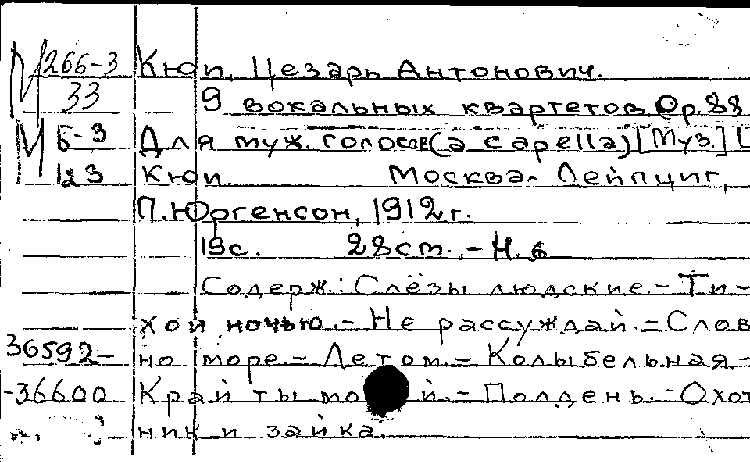 М 266-3 Кюи, Цезарь Антонович.
33 9 вокальных квартетов Op.88
М Б-3 Для муж. голосов (a capella) [Муз.] [
123 Кюи Москва-Лейпциг,
П. Юргенсон, 1912 г.
19 с. 28 см. - Н. б
Содерж: Слёзы людские. - Ти-
хой ночью. - Не рассуждай. - Слов
36592- но море. - Летом. - Колыбельная. -
-36600 Край ты мой. - Полдень. - Охот
ник и зайка.